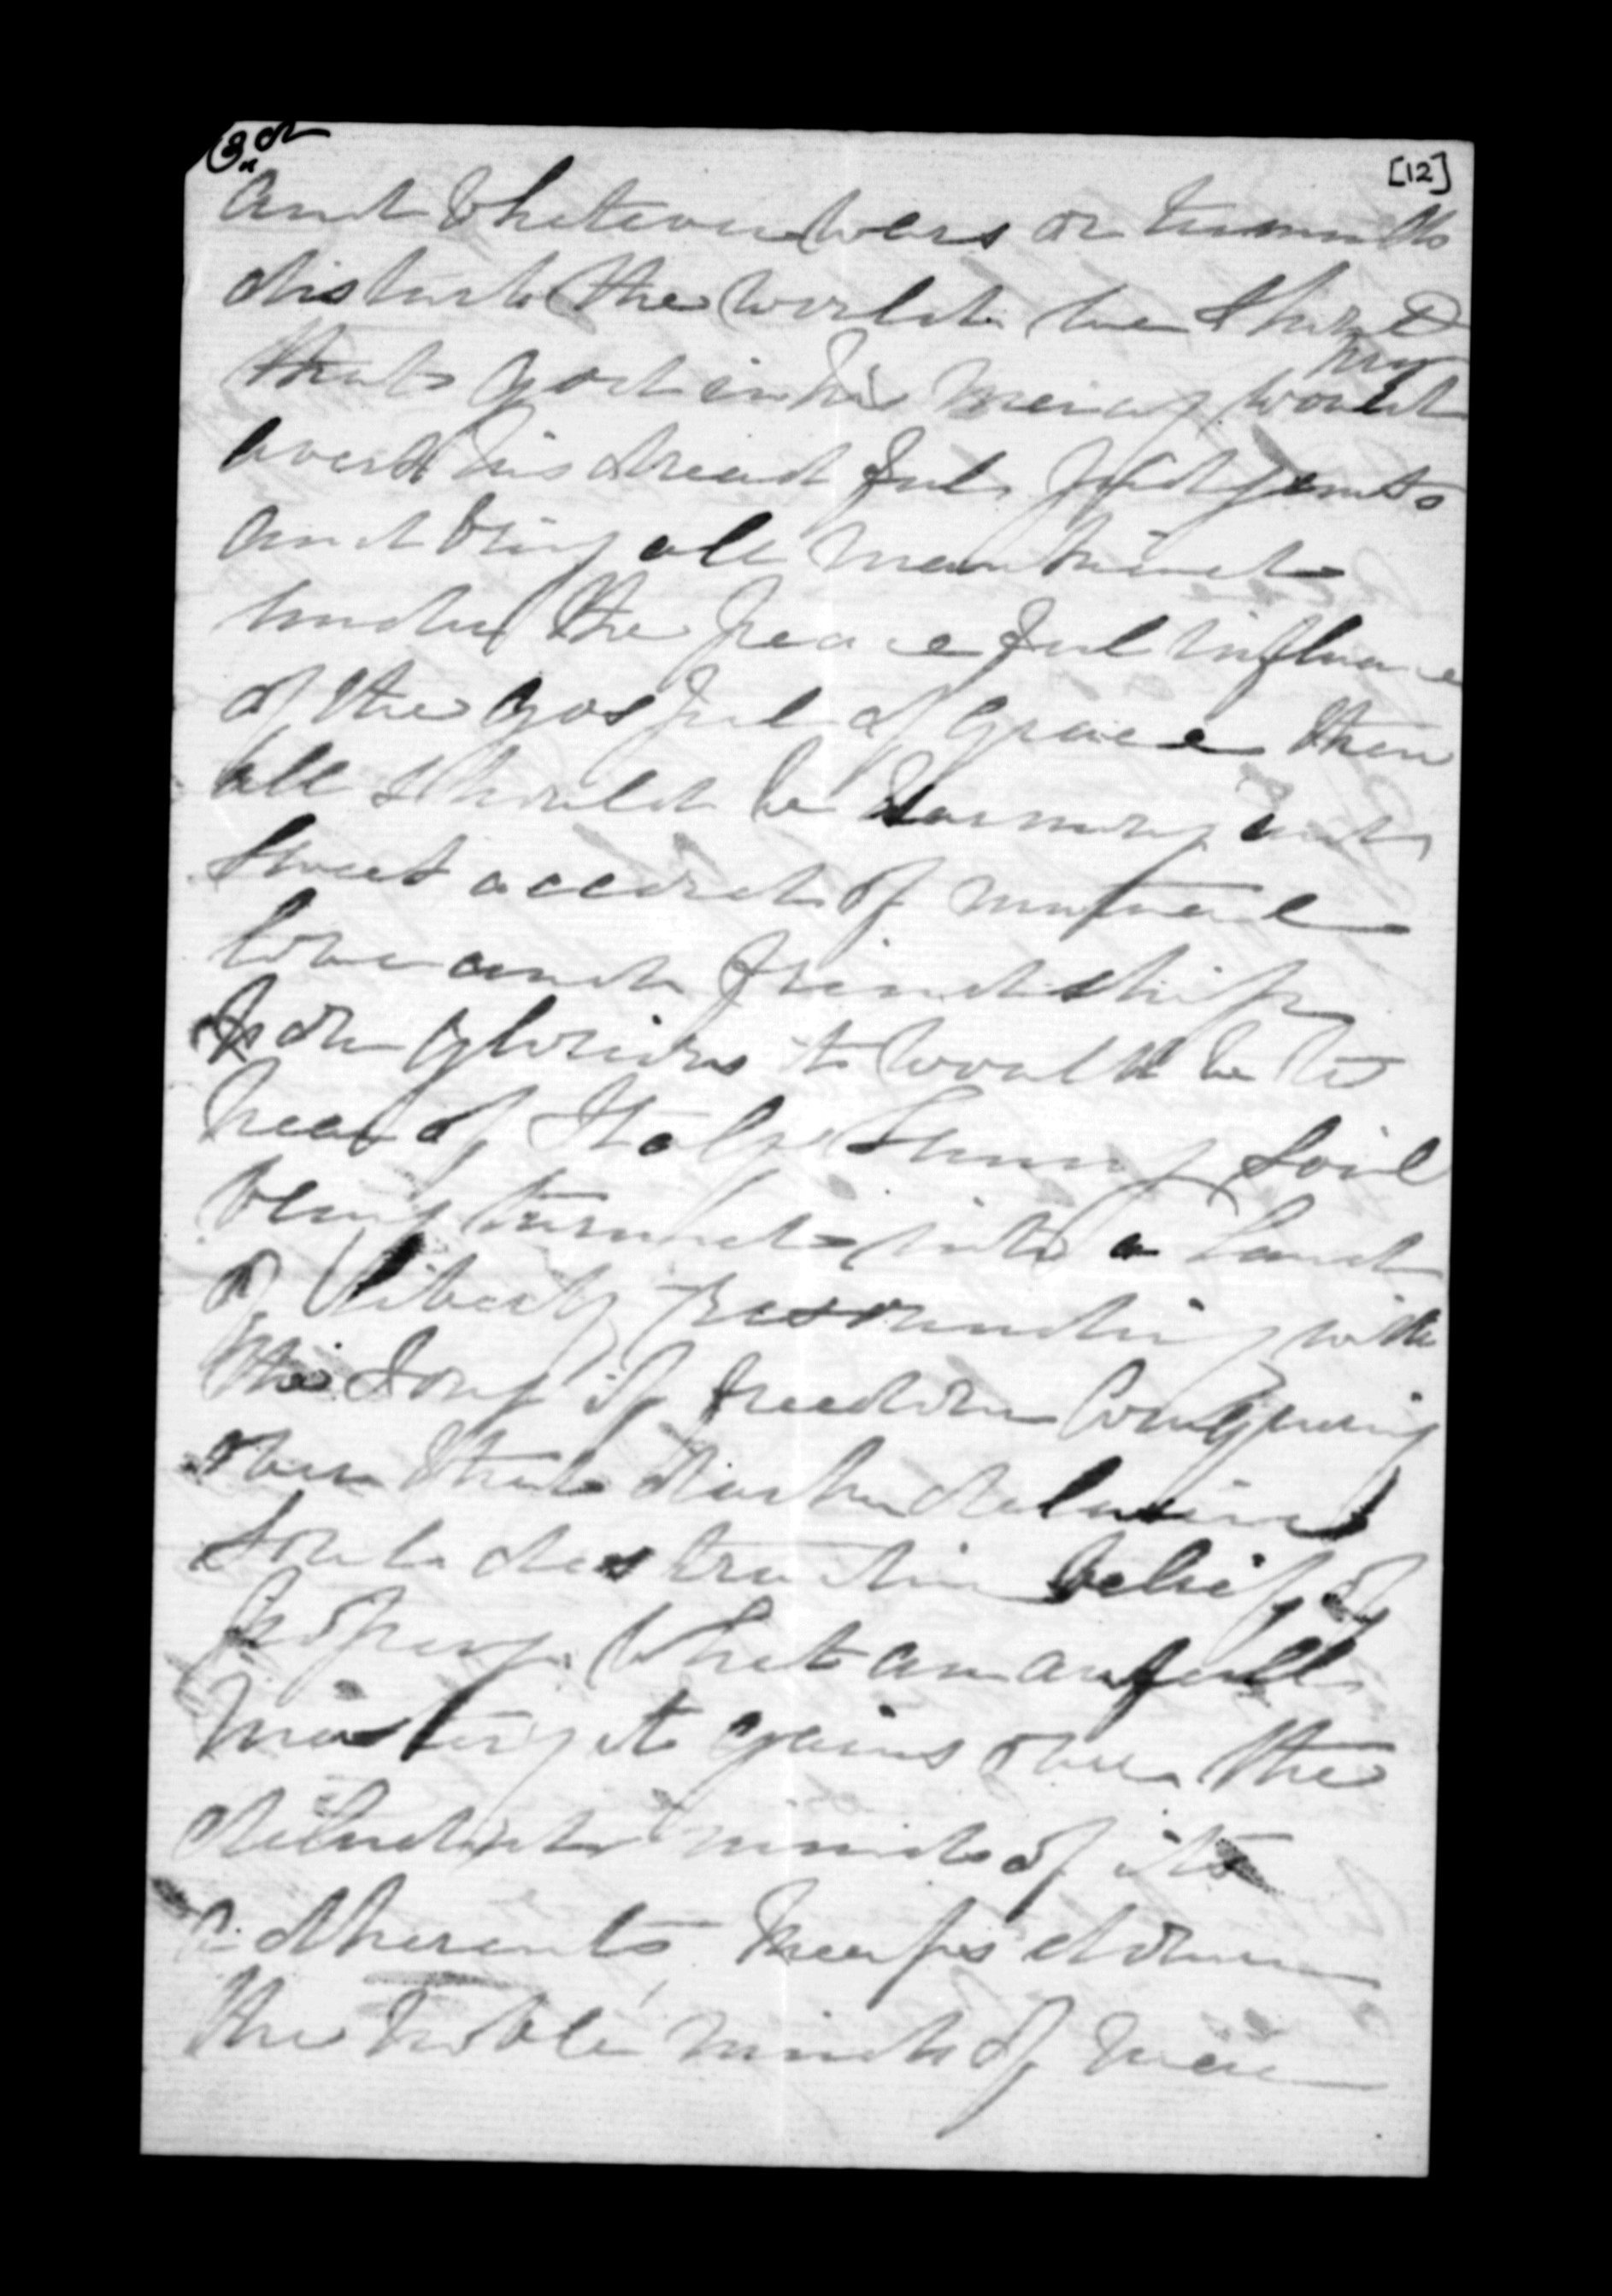 [12]
and Whatever wars or tumults
disturb the world we
pray
that God in his mercy would
avert his dreadful Judgements
and bring all mankind
under the peaceful influence
of the Gospel of Grace then
all should be harmony and
sweet accord of mutual
love and friendship
how glorious it would be to
hear of Italys Sunny Soil
being turned into a land
of liberty resounding with
the Song of freedom Conquering
over that dark delusive
Soul destructive belief of
popery. What an awfull
mastery it gains over the
minds of its
adherents keeps down
the noble mind of man